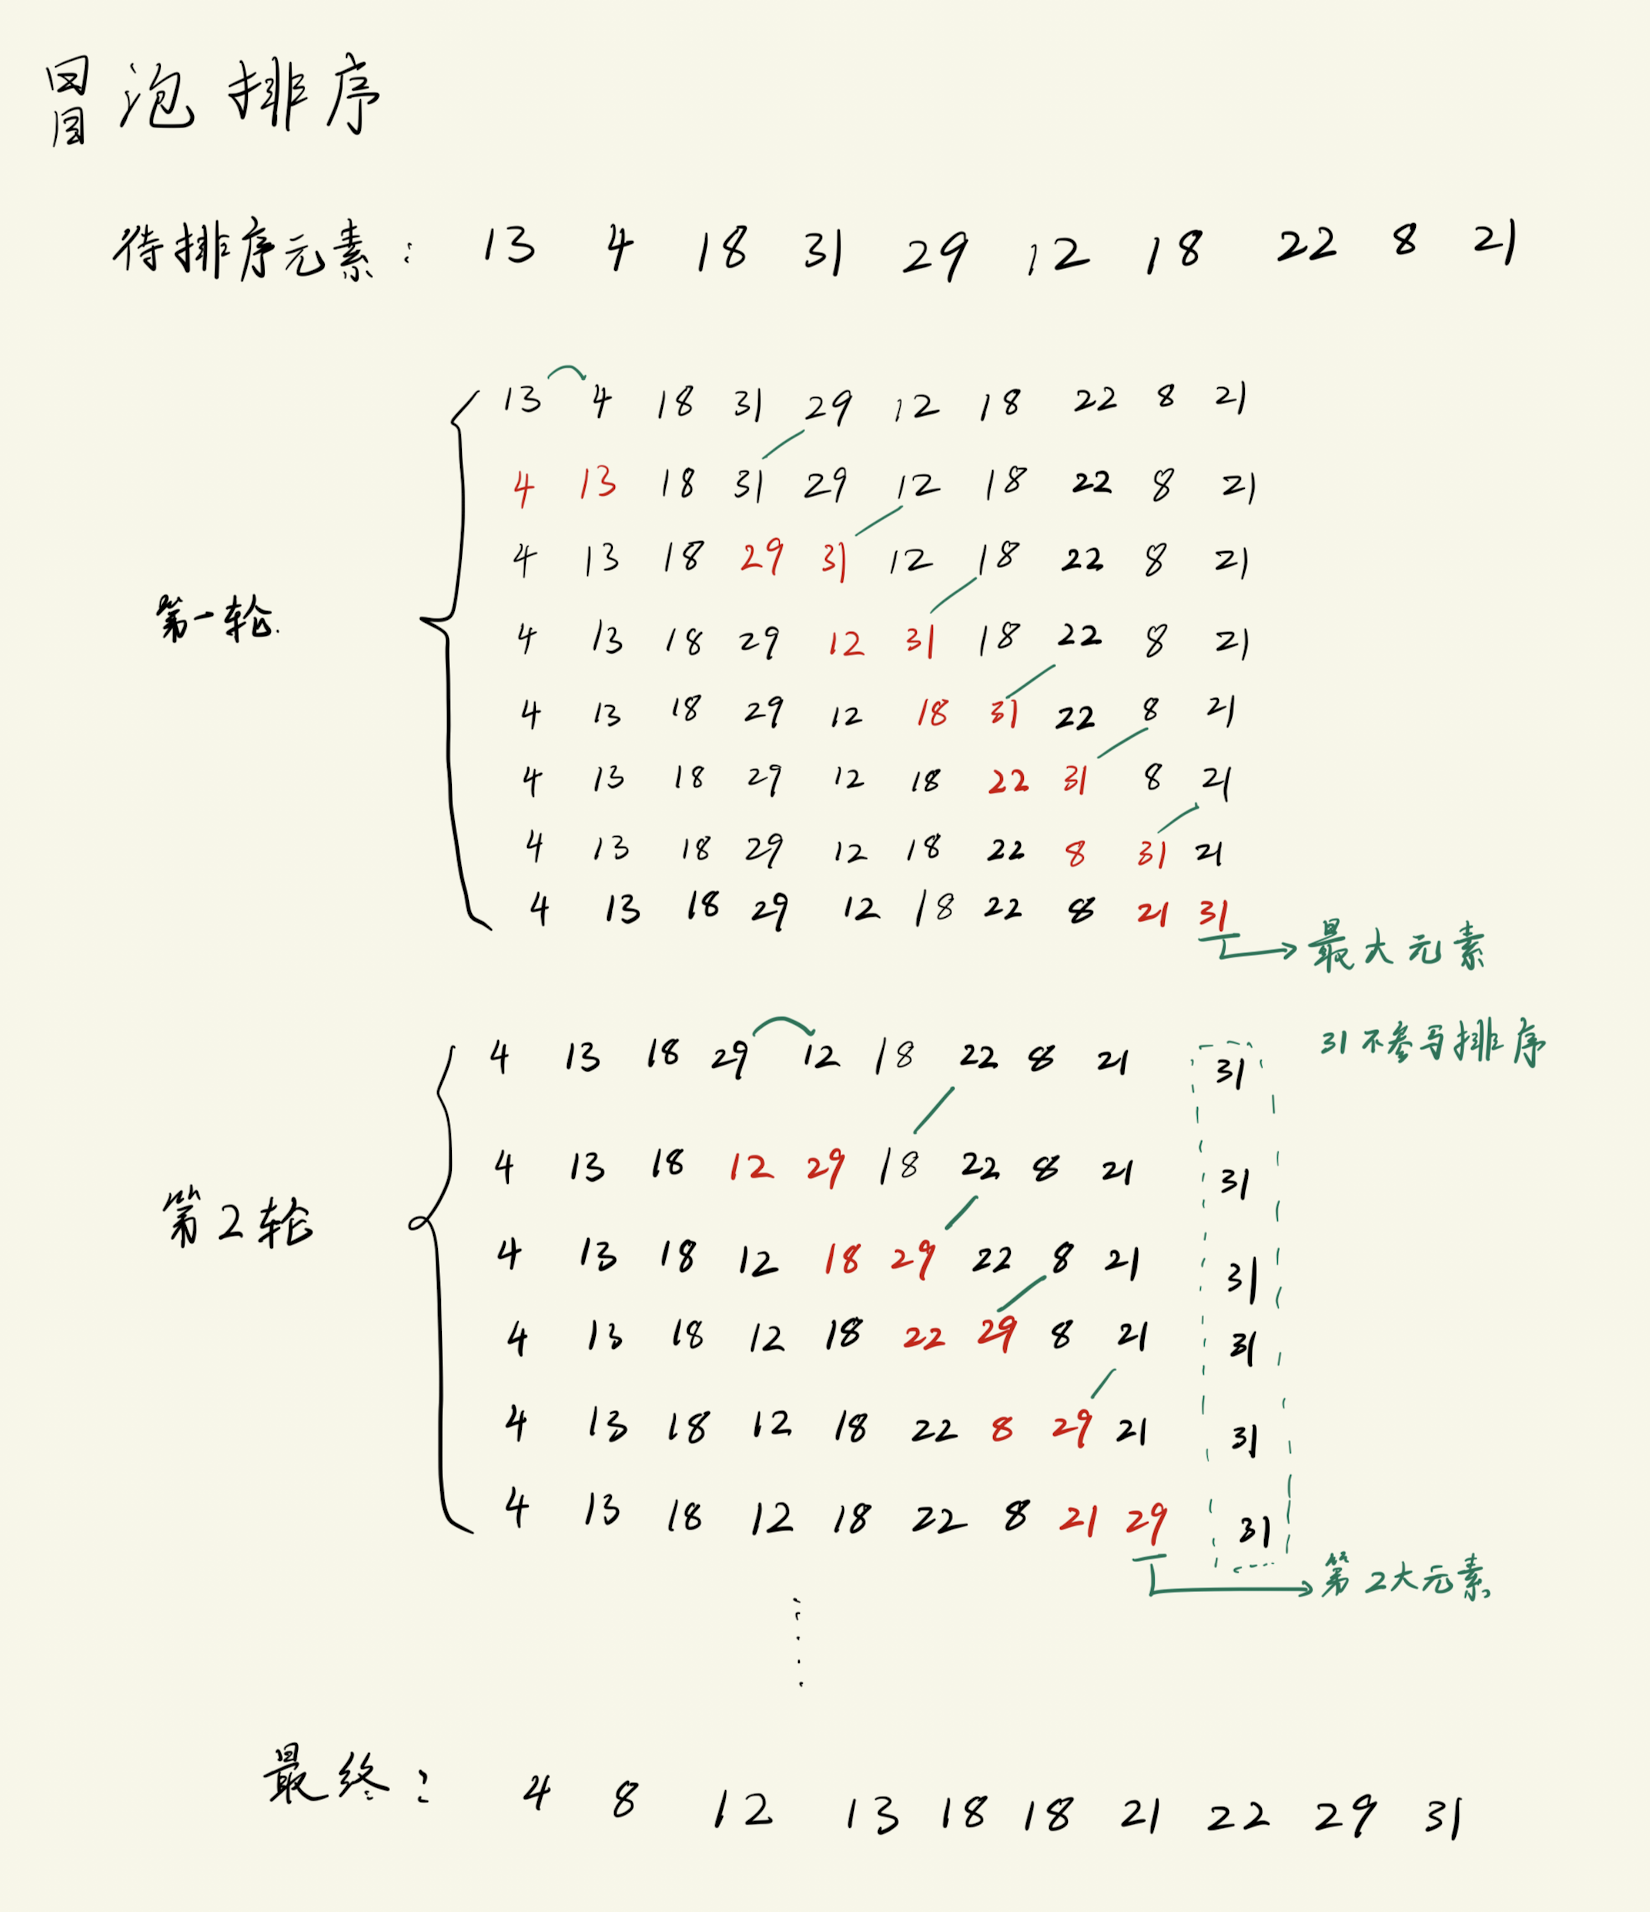 冒泡排序
待排序元素: 13 4 18 31 29 12 18 22 8 21
13 4 18 31 29 12 18 22 8 21
4 13 18 31 29 12 18 22 8 21
4 13 18 29 31 12 18 22 8 21
第一轮.
4 13 18 29 12 31 18 22 8 21
4 13 18 29 12 18 31 22 8 21
4 13 18 29 12 18 22 31 8 21
4 13 18 29 12 18 22 8 31 21
4 13 18 29 12 18 22 8 21 31
最大元素
31不参与排序
4 13 18 29 12 18 22 8 21 31
4 13 18 12 29 18 22 8 21 31
第2轮
4 13 18 12 18 29 22 8 21 31
4 13 18 12 18 22 29 8 21 31
4 13 18 12 18 22 8 29 21 31
4 13 18 12 18 22 8 21 29 31
第2大元素
最终: 4 8 12 13 18 18 21 22 29 31